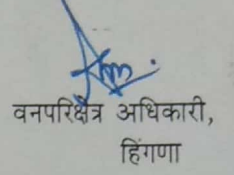 वनपरिक्षेत्र अधिकारी,
हिंगणा